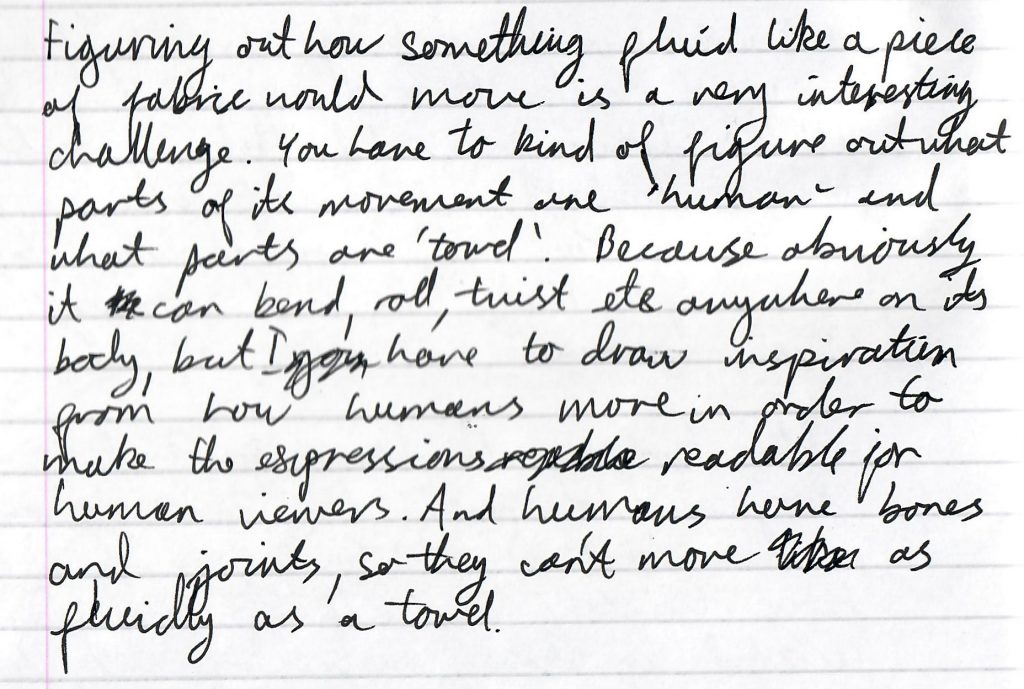 Figuring out how something fluid like a piece
of fabric would move is a very interesting
challenge. You have to kind of figure out what
parts of its movement are 'human' and
what parts are 'towel'. Because obviously
it can bend, roll, twist etc anywhere on its
body, but I have to draw inspiration
from how humans move in order to
make the expressions readable for
human viewers. And humans have bones
and joints, so they can't move as
fluidly as a towel.